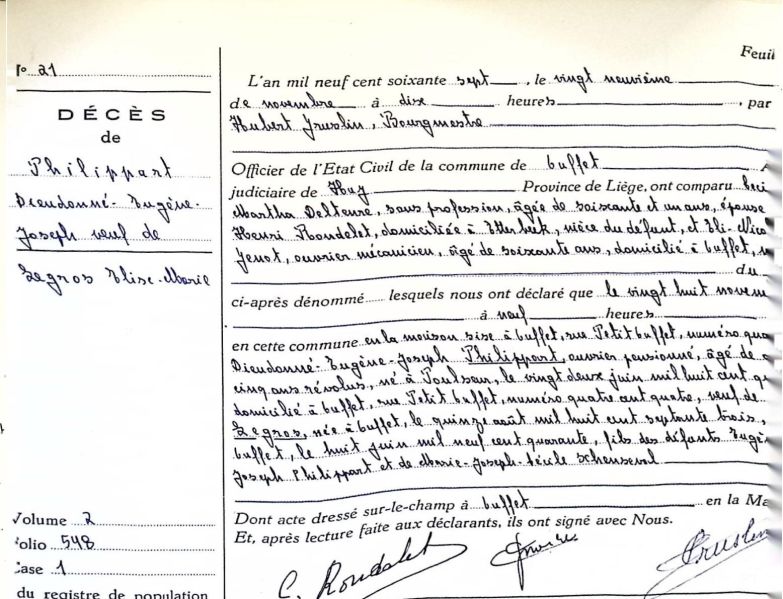 Feuil
N° 21
DÉCÈS
de
Philippart
Dieudonné-Eugène-
Joseph veuf de
Legros Elise-Marie
Volume 2
Folio 548
Case 1
du registre de population
L'an mil neuf cent soixante sept, le vingt neuvième
de novembre à dix heures, par
Hubert Gruslin, Bourgmestre
Officier de l'Etat Civil de la commune de Ouffet
judiciaire de Huy Province de Liège, ont comparu
Martha Delteure, sans profession, âgée de soixante et un ans, épouse
Henri Rondelet, domiciliée à Etterbeek, nièce du défunt, et
Jenot, ouvrier mécanicien, âgé de soixante ans, domicilié à Ouffet,
du
ci-après dénommé lesquels nous ont déclaré que le vingt huit novem
à neuf heures
en cette commune en la maison sise à Ouffet, rue Petit Ouffet, numéro qua
Dieudonné-Eugène-Joseph Philippart, ouvrier pensionné, âgé de
cinq ans révolus, né à Poulseur, le vingt deux juin mil huit cent
domicilié à Ouffet, rue Petit Ouffet, numéro quatre cent quatre, veuf de
Legros, née à Ouffet, le quinze août mil huit cent septante trois,
Ouffet, le huit juin mil neuf cent quarante, fils des défunts Eugèn
Joseph Philippart et de Marie-Joseph-Cécile
Dont acte dressé sur-le-champ à Ouffet en la Ma
Et, après lecture faite aux déclarants, ils ont signé avec Nous.
C. Rondelet Gruslin